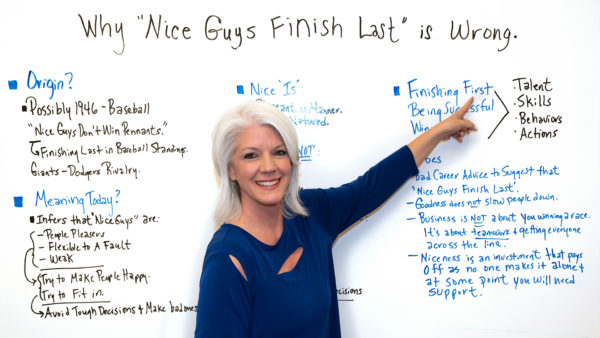 Why "Nice Guys Finish Last" is Wrong.
Origin?
Possibly 1946 - Baseball
"Nice Guys Don't Win Pennants."
Finishing Last in Baseball Standings.
Giants - Dodgers Rivalry.
Meaning Today?
Infers that "Nice Guys" are:
- People Pleasers
- Flexible to A Fault
- Weak
Try to Make People Happy.
Try to Fit in.
Avoid Tough Decisions & Make bad ones
Nice "Is":
in Manner.
Natured.
NOT':
Finishing First
Being Successful
Talent
Skills
Behaviors
Actions
Bad Career Advice to Suggest that
'Nice Guys Finish Last'.
- Goodness does not slow people down.
- Business is NOT about you winning a race.
It's about teamwork & getting everyone
across the line.
- Niceness is an investment that pays
off as no one makes it alone &
at some point you will need
support.